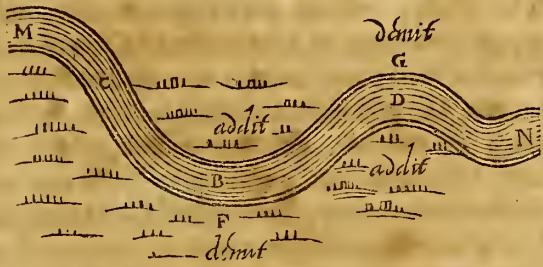 démit
G
M
C
D
addit
N
addit
B
F
démit